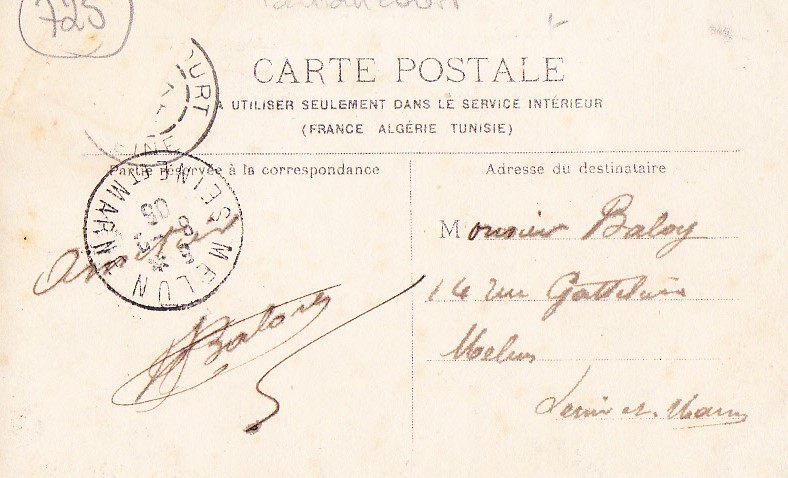 725
CARTE POSTALE
A UTILISER SEULEMENT DANS LE SERVICE INTÉRIEUR
(FRANCE ALGÉRIE TUNISIE)
Partie réservée à la correspondance
Adresse du destinataire
COURT
SEINE
MELUN SEINE ET MARNE
05
Monsieur Baloy
14 rue
Melun
Seine et Marne